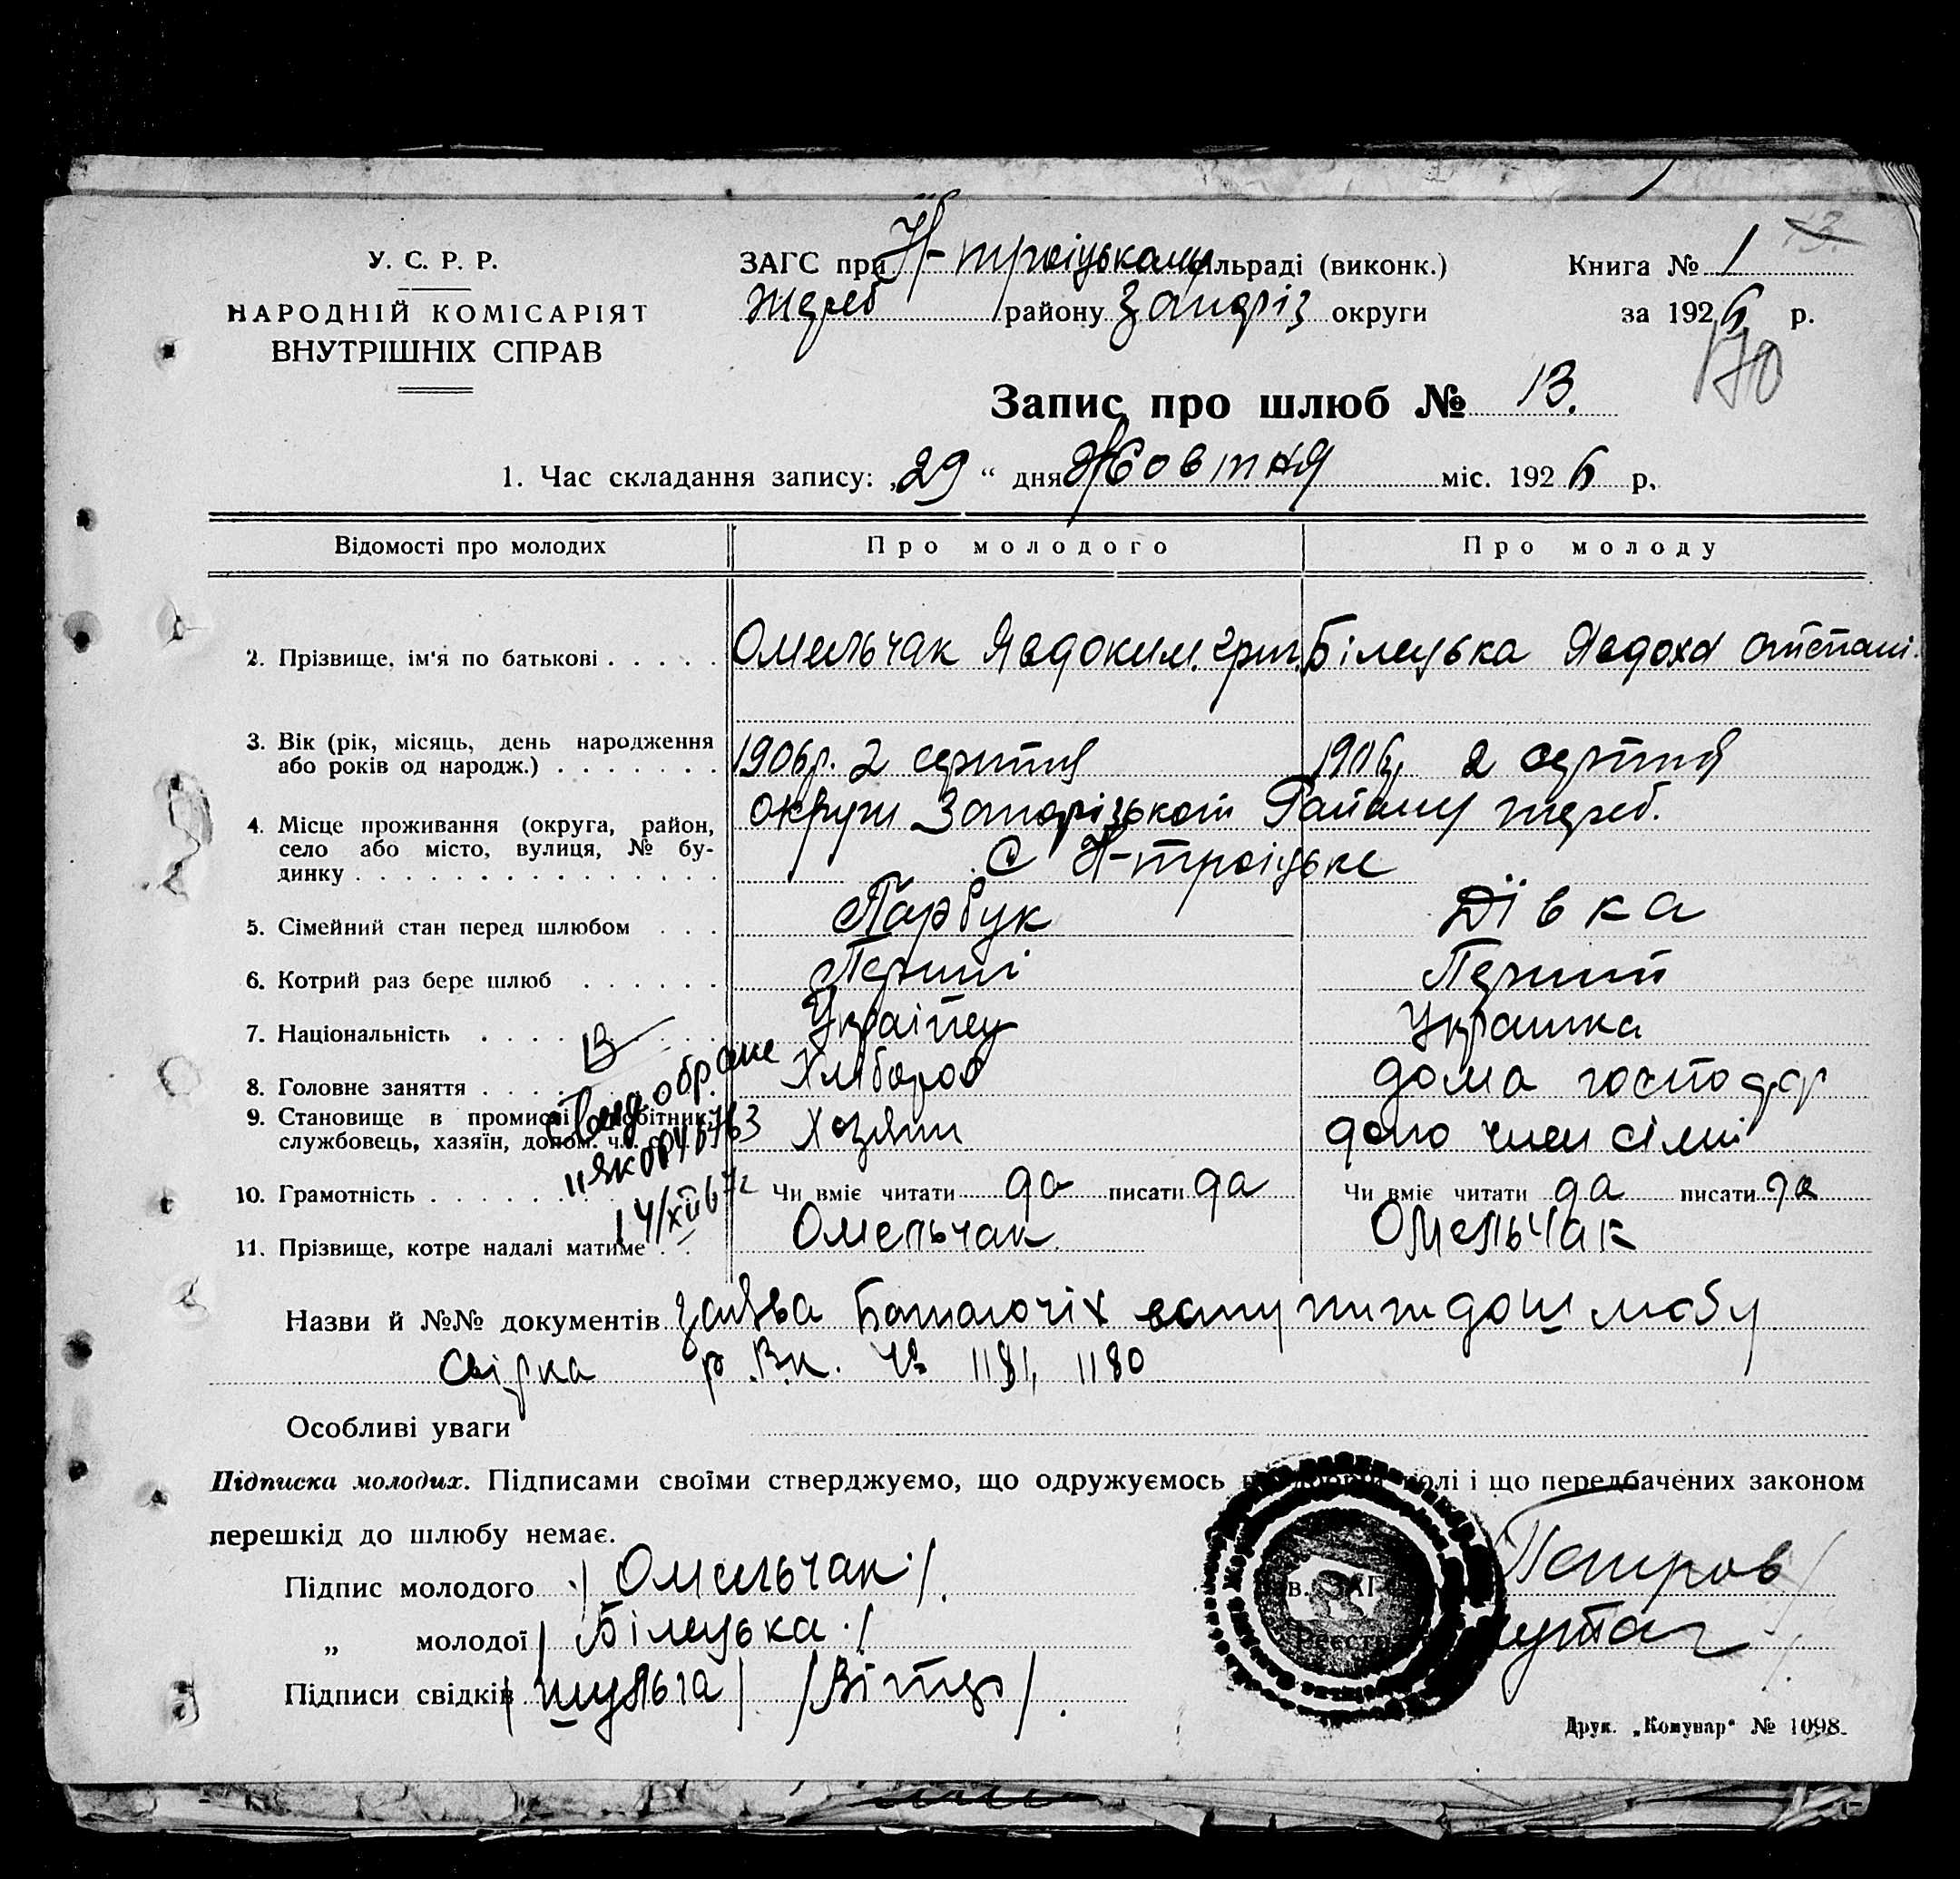 У. С. Р. Р.
НАРОДНІЙ КОМІСАРІЯТ
ВНУТРІШНІХ СПРАВ
ЗАГС при Н-троіцькому сільраді (виконк.)
Жереб району Запоріз округи
Книга № 1
13.
за 1926 р.
170
Запис про шлюб № 13.
1. Час складання запису: „29“ дня Жовтня міс. 1926 р.
Відомості про молодих Про молодого Про молоду
2. Прізвище, ім'я по батькові Омельчак Явдоким. григ. Білецька Явдоха степані.
3. Вік (рік, місяць, день народження
або років од народж.) 1906р. 2 серптня 1906р. 2 серптня
4. Місце проживання (округа, район,
село або місто, вулиця, № бу-
динку
округи Запорізькоі Району жереб.
С Н-троіцьке
5. Сімейний стан перед шлюбом Парбук Дівка
6. Котрий раз бере шлюб Перший Перший
7. Національність Украінец Украінка
13
8. Головне заняття Хлібороб дома господар
9. Становище в промислі робітник,
службовець, хазяїн, допом. ч. с. Хозяін допо член сімі
763
14/XII 67г
10. Грамотність Чи вміє читати да писати да Чи вміє читати да писати да
11. Прізвище, котре надалі матиме Омельчак Омельчак
Назви й №№ документів заява шлюбу
р.В.к. № 1181, 1180
Особливі уваги
Підписка молодих. Підписами своїми стверджуємо, що одружуємось по добрій волі і що передбачених законом
перешкід до шлюбу немає.
Підпис молодого / Омельчак /.
„ молодої / Білецька. /
Підписи свідків / шульга / /Вітер/.
Зав. ЗАГС
Реєстр
Петров
Друк. „Комунар“ № 1098.